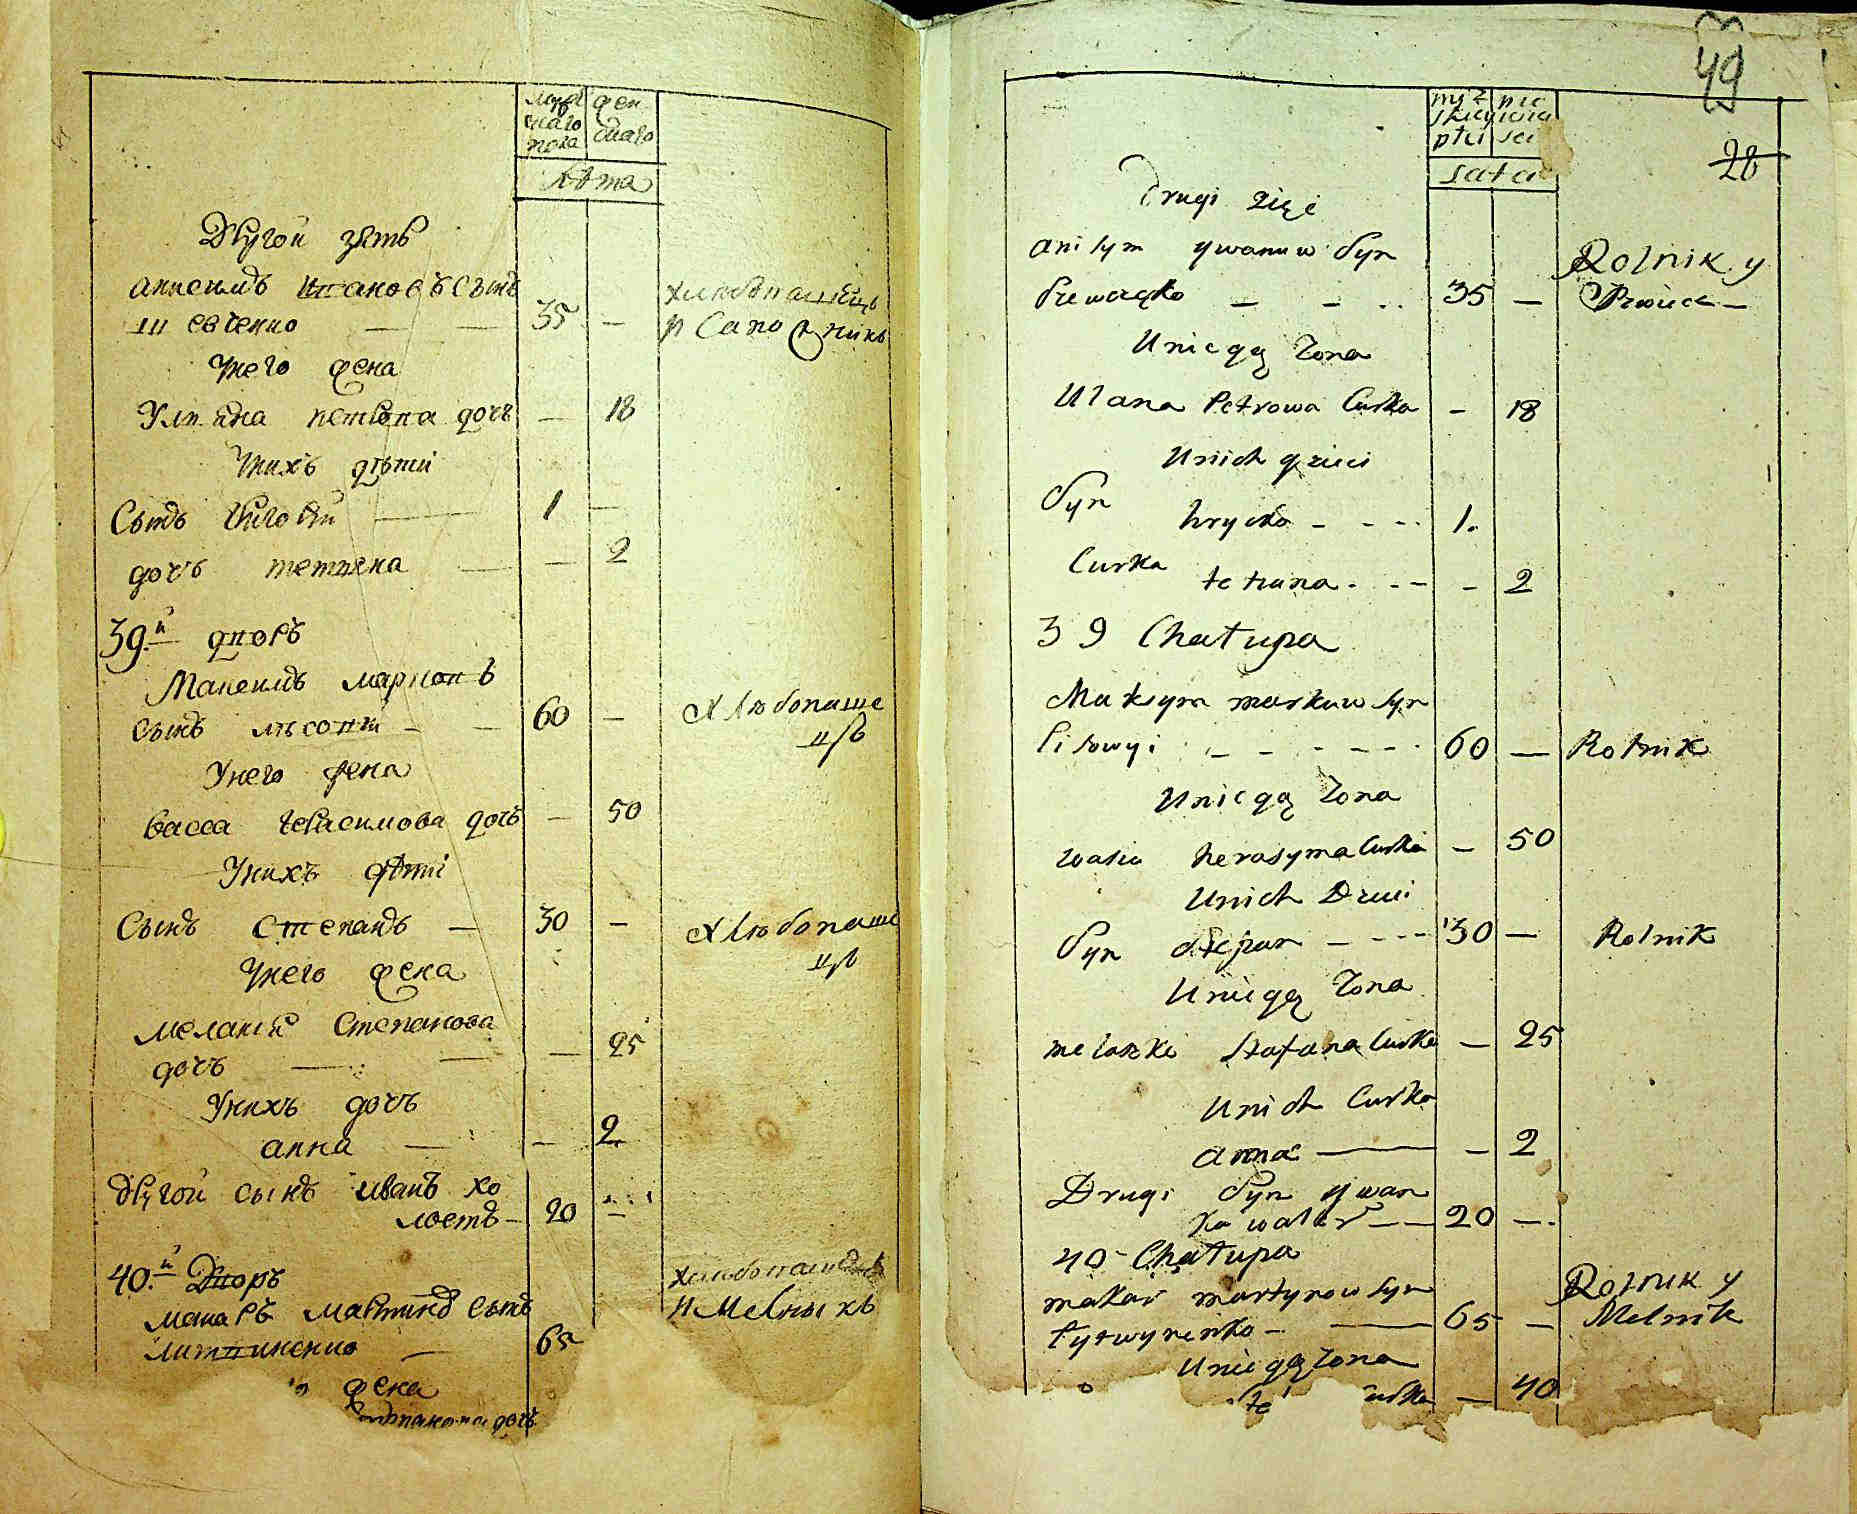 мужескаго пола
женскаго
лѣта
Другой зять
анисимъ ивановъ сынъ
шевченко — — 35 —
хлѣбопашецъ
и Сапожникъ
Унего жена
Ульяна петрова дочь — 18
Унихъ дѣти
Сынъ Григорій — 1 —
дочь тетяна — — 2
39.й дворъ
Максимъ марковъ
сынъ лѣсовий — — 60 —
хлѣбопаше
цъ
Унего жена
васса герасимова дочь — 50
Унихъ дѣти
Сынъ Степанъ — 30 —
хлѣбопаше
цъ
Унего жена
меланія Степанова
дочь — — — 25
Унихъ дочь
анна — — 2
другой сынъ иванъ хо
лостъ — 20 —
40.й Дворъ
макаръ мартиновъ сынъ
литвиненко — 65
хлѣбопашецъ
и Мельникъ
жена
дочь
49
28
męzkiey płci
lata
Drugi zięć
anisym ywanuw Syn
Szewczęko — — 35 —
Rolnik y
Szwiec —
Uniegą Zona
Ulana Petrowa Curka — 18
Unich dzieci
Syn hrycko — — — 1.
Curka tetiana — — — 2
39 Chałupa
Maksym markuw Syn
lisowyi — — — — 60 — Rolnik
Uniegą Zona
wasia herasyma Curka — 50
Unich Dzieci
Syn Stepan — — — 30 — Rolnik
Uniegą Zona
melaszka Stafana Curka — 25
Unich Curka
anna — — 2
Drugi Syn ywan
Kawaler — — 20 —
40 Chałupa
makar martynow Syn
łytwynenko — — 65 —
Rolnik y
Melnik
Uniegą Zona
Curka — 40